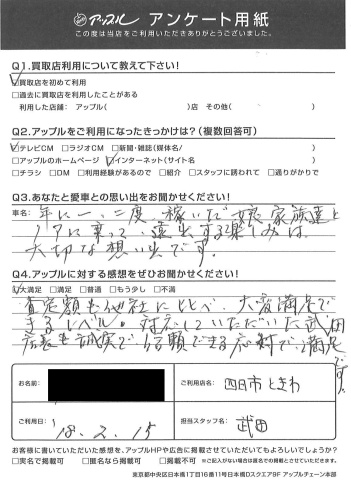 アップル アンケート用紙
この度は当店をご利用いただきありがとうございました。
Q1.買取店利用について教えて下さい!
☑買取店を初めて利用
□過去に買取店を利用したことがある
利用した店舗: アップル( )店 その他( )
Q2.アップルをご利用になったきっかけは?(複数回答可)
☑テレビCM □ラジオCM □新聞・雑誌(媒体名/ )
□アップルのホームページ ☑インターネット(サイト名 )
□チラシ □DM □利用経験があるので □紹介 □スタッフに誘われて □通りがかりで
Q3.あなたと愛車との思い出をお聞かせください!
車名: 年に一、二度、稼いだ 家族達と
乗って、遠出する楽しみは
大切な想い出です。
Q4.アップルに対する感想をぜひお聞かせください!
☑大満足 □満足 □普通 □もう少し □不満
査定額も他社にくらべ、大変満足で
きるレベル。対応していただいた武田
店長も誠実で信頼できる応対で満足
です。
お名前:
ご利用店名: 四日市ときわ
ご利用日: 18.2.15
担当スタッフ名: 武田
お客様に書いていただいた感想を、アップルHPや広告に掲載させていただいてもよろしいでしょうか?
□実名で掲載可 □匿名なら掲載可 □掲載不可 ※ご記入がない場合は匿名での掲載とさせていただきます。
東京都中央区日本橋1丁目16番11号日本橋Dスクエア9F アップルチェーン本部